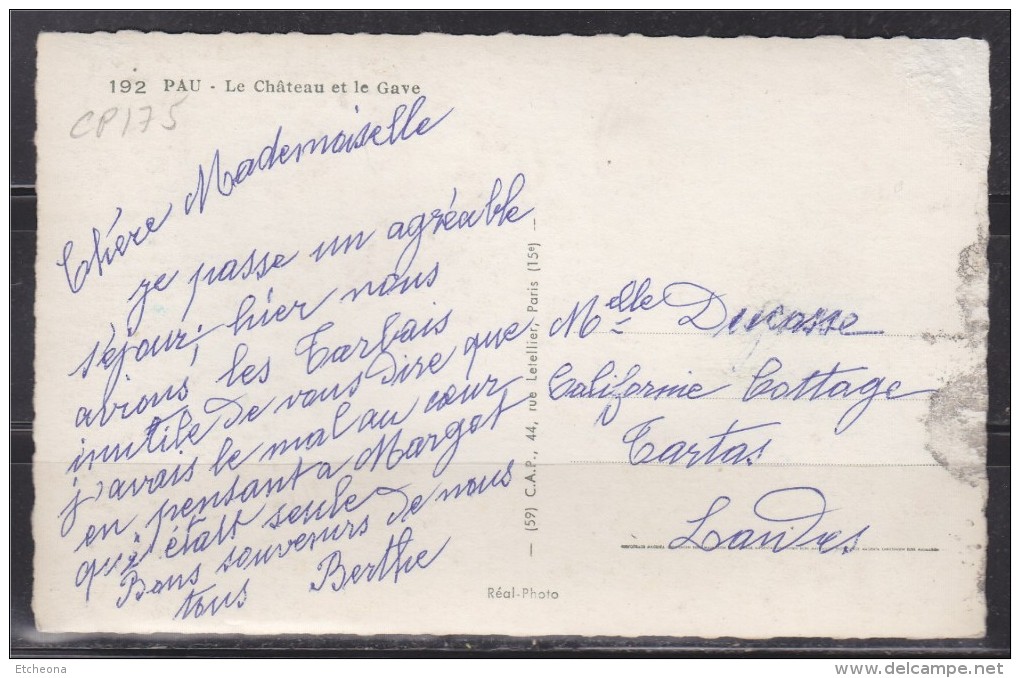 192 PAU - Le Château et le Gave
CP175
Chère Mademoiselle
je passe un agréable
séjour, hier nous
avions les Tarbais
inutile de vous dire que
j'avais le mal au cœur
en pensant a Margot
qui était seule
Bons souvenirs de nous
tous Berthe
(59) C.A.P., 44, rue Letellier, Paris (15e)
Melle Dugasse
Californie Cottage
Tartas
Landes
Réal-Photo
Etcheona
www.delcampe.net